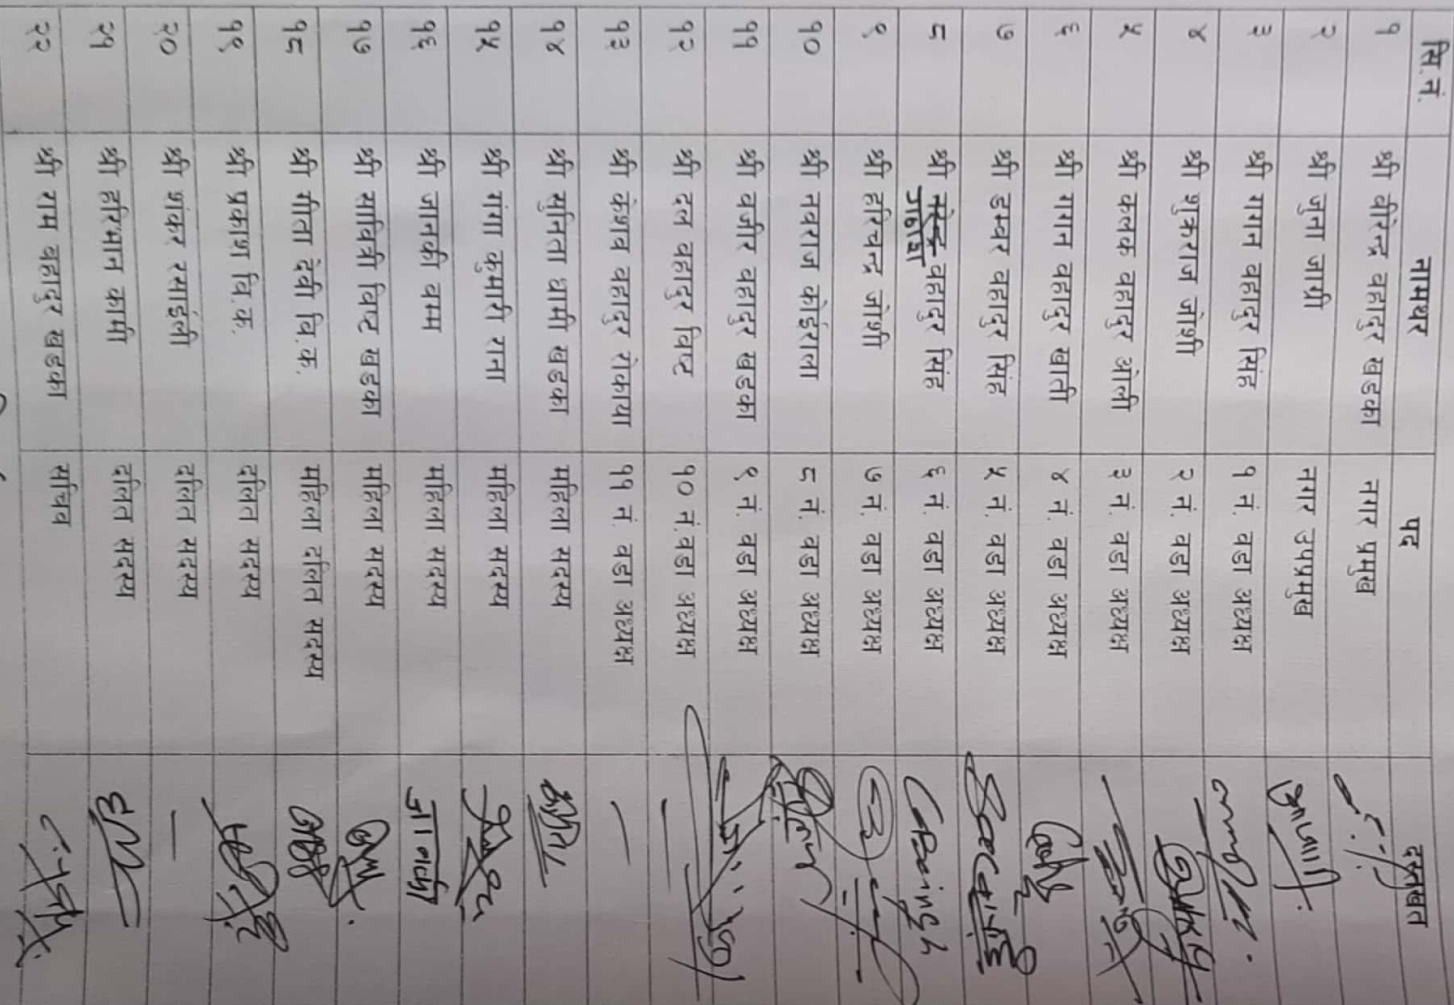 सि.नं. नामथर पद दस्तखत
१ श्री वीरेन्द्र बहादुर खड्का नगर प्रमुख
२ श्री जुना जाग्री नगर उपप्रमुख
३ श्री गगन बहादुर सिंह १ नं. वडा अध्यक्ष
४ श्री शुकराज जोशी २ नं. वडा अध्यक्ष
५ श्री कलक बहादुर ओली ३ नं. वडा अध्यक्ष
६ श्री गगन बहादुर खाती ४ नं. वडा अध्यक्ष
७ श्री डम्बर बहादुर सिंह ५ नं. वडा अध्यक्ष
८ श्री बहादुर सिंह ६ नं. वडा अध्यक्ष
९ श्री हरिचन्द्र जोशी ७ नं. वडा अध्यक्ष
१० श्री नवराज कोइराला ८ नं. वडा अध्यक्ष
११ श्री वजीर बहादुर खड्का ९ नं. वडा अध्यक्ष
१२ श्री दल बहादुर विष्ट १० नं. वडा अध्यक्ष
१३ श्री केशव बहादुर रोकाया ११ नं. वडा अध्यक्ष —
१४ श्री सुनिता धामी खड्का महिला सदस्य
१५ श्री गंगा कुमारी राना महिला सदस्य
१६ श्री जानकी बम्म महिला सदस्य जानकी
१७ श्री सावित्री विष्ट खड्का महिला सदस्य
१८ श्री गीता देवी वि.क. महिला दलित सदस्य
१९ श्री प्रकाश वि.क. दलित सदस्य
२० श्री शंकर रसाईली दलित सदस्य —
२१ श्री हरिभान कामी दलित सदस्य
२२ श्री राम बहादुर खड्का सचिव